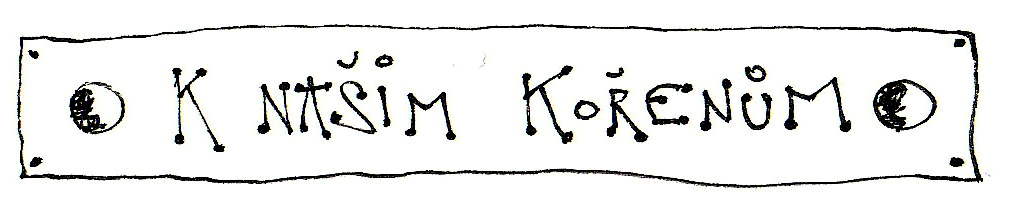 K NAŠIM KOŘENŮM